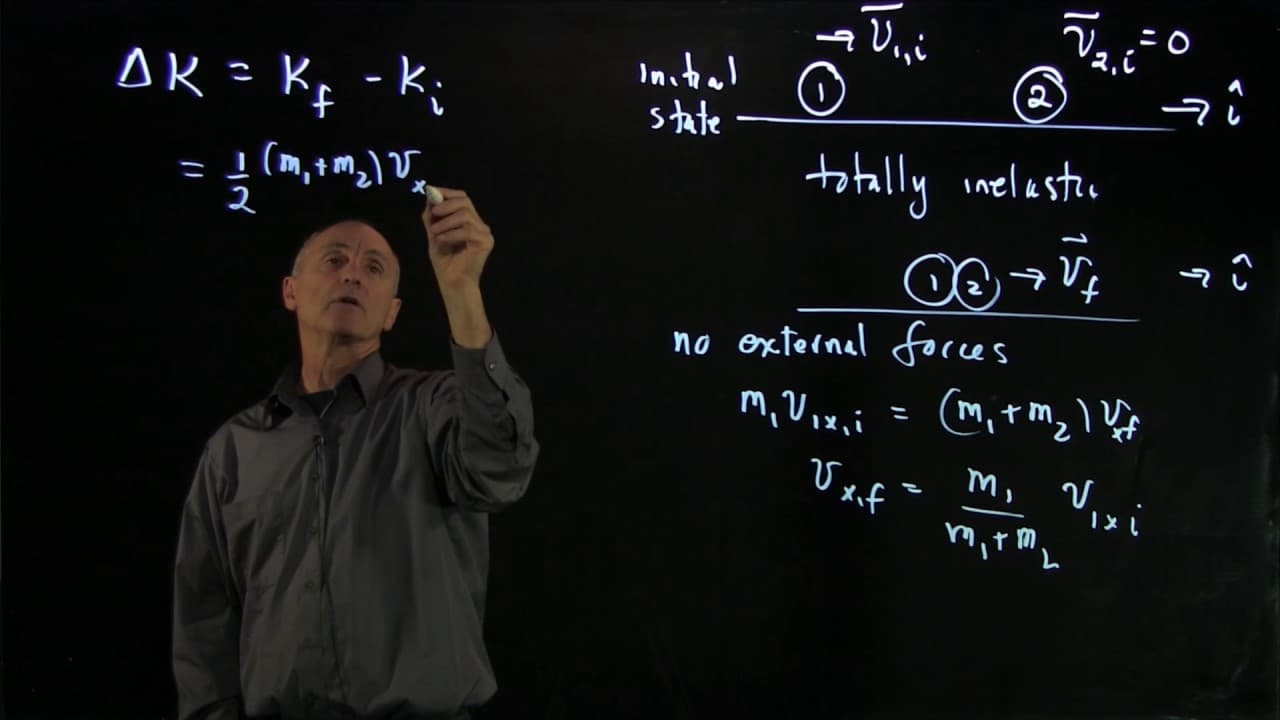 ΔK = K_f - K_i
= 1/2 (m_1 + m_2) v_x
→ v̄_1,i   v̄_2,i = 0
initial ① ② → î
state
totally inelastic
①② → v⃗_f → î
no external forces
m_1 v_1x,i = (m_1 + m_2) v_xf
v_x,f = m_1 / (m_1 + m_2) v_1xi